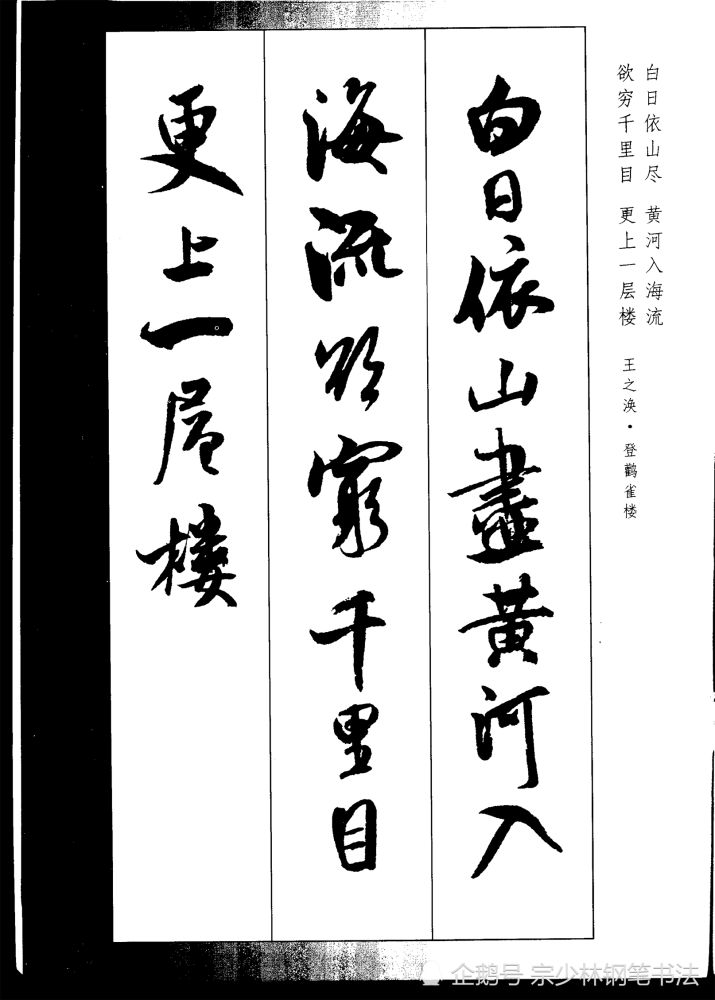 白日依山尽 黄河入海流
欲穷千里目 更上一层楼 王之涣·登鹳雀楼
白日依山盡黄河入
海流欲窮千里目
更上一層樓
企鹅号 宗少林钢笔书法